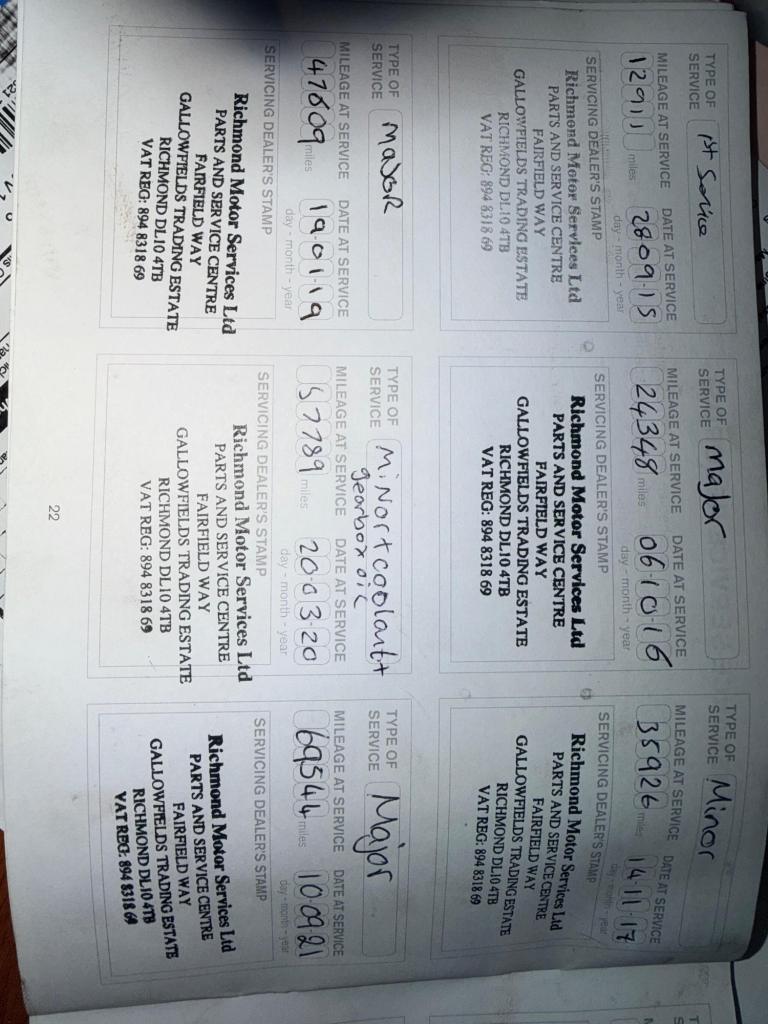 TYPE OF SERVICE 1st Service
MILEAGE AT SERVICE DATE AT SERVICE
12911 miles 28.09.15
day - month - year
SERVICING DEALER'S STAMP
Richmond Motor Services Ltd
PARTS AND SERVICE CENTRE
FAIRFIELD WAY
GALLOWFIELDS TRADING ESTATE
RICHMOND DL10 4TB
VAT REG: 894 8318 69
TYPE OF SERVICE major
MILEAGE AT SERVICE DATE AT SERVICE
24348 miles 06.10.16
day - month - year
SERVICING DEALER'S STAMP
Richmond Motor Services Ltd
PARTS AND SERVICE CENTRE
FAIRFIELD WAY
GALLOWFIELDS TRADING ESTATE
RICHMOND DL10 4TB
VAT REG: 894 8318 69
TYPE OF SERVICE Minor
MILEAGE AT SERVICE DATE AT SERVICE
35926 miles 14.11.17
day - month - year
SERVICING DEALER'S STAMP
Richmond Motor Services Ltd
PARTS AND SERVICE CENTRE
FAIRFIELD WAY
GALLOWFIELDS TRADING ESTATE
RICHMOND DL10 4TB
VAT REG: 894 8318 69
TYPE OF SERVICE majoR
MILEAGE AT SERVICE DATE AT SERVICE
47809 miles 19.01.19
day - month - year
SERVICING DEALER'S STAMP
Richmond Motor Services Ltd
PARTS AND SERVICE CENTRE
FAIRFIELD WAY
GALLOWFIELDS TRADING ESTATE
RICHMOND DL10 4TB
VAT REG: 894 8318 69
TYPE OF SERVICE MiNor+coolant+
gearbox oil
MILEAGE AT SERVICE DATE AT SERVICE
57789 miles 20.03.20
day - month - year
SERVICING DEALER'S STAMP
Richmond Motor Services Ltd
PARTS AND SERVICE CENTRE
FAIRFIELD WAY
GALLOWFIELDS TRADING ESTATE
RICHMOND DL10 4TB
VAT REG: 894 8318 69
TYPE OF SERVICE Major
MILEAGE AT SERVICE DATE AT SERVICE
69544 miles 10.09.21
day - month - year
SERVICING DEALER'S STAMP
Richmond Motor Services Ltd
PARTS AND SERVICE CENTRE
FAIRFIELD WAY
GALLOWFIELDS TRADING ESTATE
RICHMOND DL10 4TB
VAT REG: 894 8318 69
22